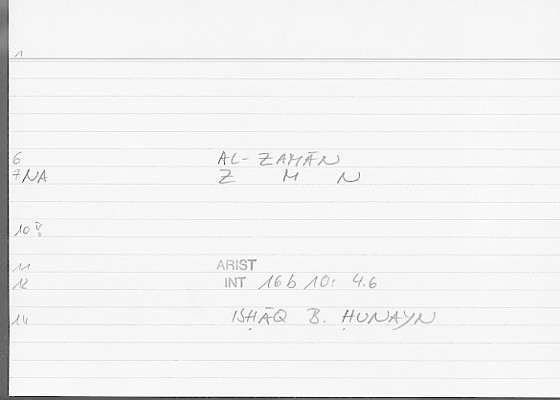 1
6 AL-ZAMĀN
7NA Z M N
10
11 ARIST
12 INT 16b 10: 4.6
14 ISḤĀQ B. ḤUNAYN